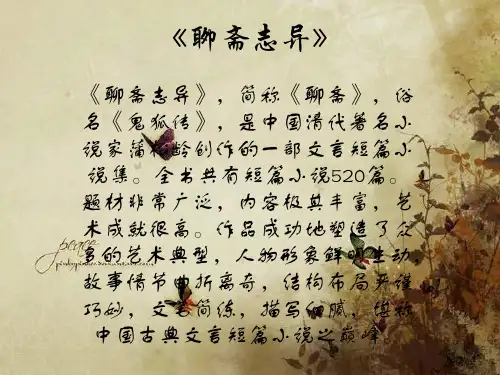 《聊斋志异》
《聊斋志异》，简称《聊斋》，俗
名《鬼狐传》，是中国清代著名小
说家蒲松龄创作的一部文言短篇小
说集。全书共有短篇小说520篇。
题材非常广泛，内容极其丰富，艺
术成就很高。作品成功地塑造了众
多的艺术典型，人物形象鲜明生动，
故事情节曲折离奇，结构布局严谨
巧妙，文笔简练，描写细腻，堪称
中国古典文言短篇小说之巅峰
peace